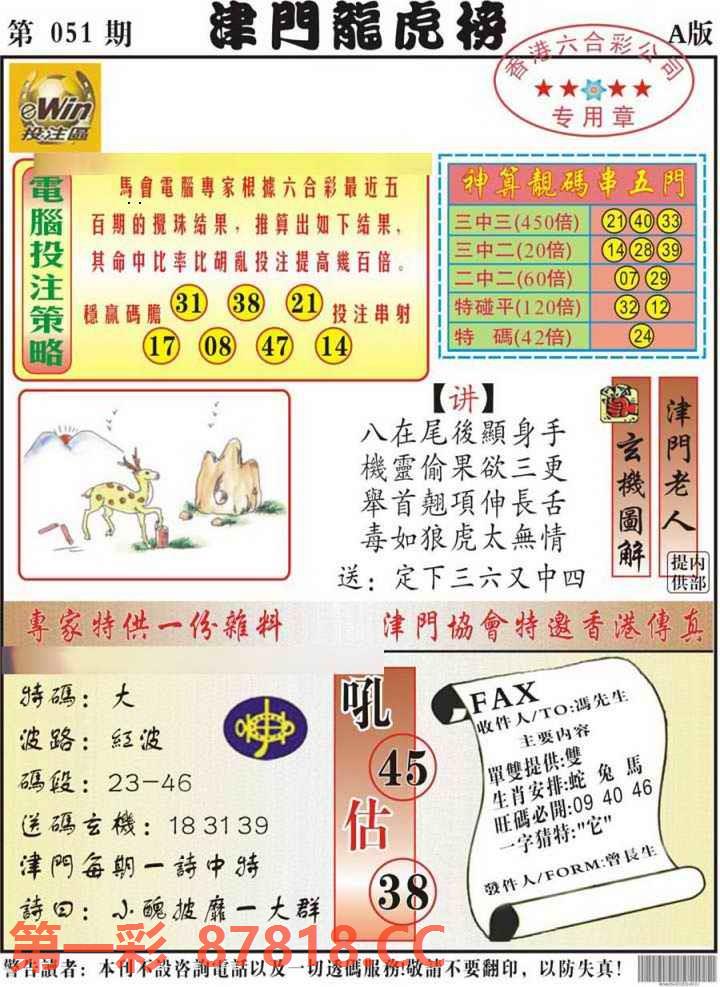 第 051 期
津門龍虎榜
A版
香港六合彩公司
专用章
eWin
投注區
電腦投注策略
馬會電腦專家根據六合彩最近五
百期的攪珠结果，推算出如下结果，
其命中比率比胡亂投注提高幾百倍。
穩赢碼膽 31 38 21 投注串射
17 08 47 14
神算靚碼串五門
三中三(450倍) 21 40 33
三中二(20倍) 14 28 39
二中二(60倍) 07 29
特碰平(120倍) 32 12
特 碼(42倍) 24
【讲】
八在尾後顯身手
機靈偷果欲三更
舉首翘項伸長舌
毒如狼虎太無情
送：定下三六又中四
玄機圖解
津門老人
内部提供
專家特供一份雜料
津門協會特邀香港傳真
特碼：大
波路：紅波
碼段：23-46
送碼玄機：18 31 39
津門每期一詩中特
詩曰：小醜披靡一大群
吼
45
估
38
FAX
收件人/TO:馮先生
主要内容
單雙提供:雙
生肖安排:蛇 兔 馬
旺碼必開:09 40 46
一字猜特:"它"
發件人/FORM:曾長生
第一彩 87818.CC
警告讀者：本刊不設咨詢電話以及一切透碼服務!敬請不要翻印，以防失真！